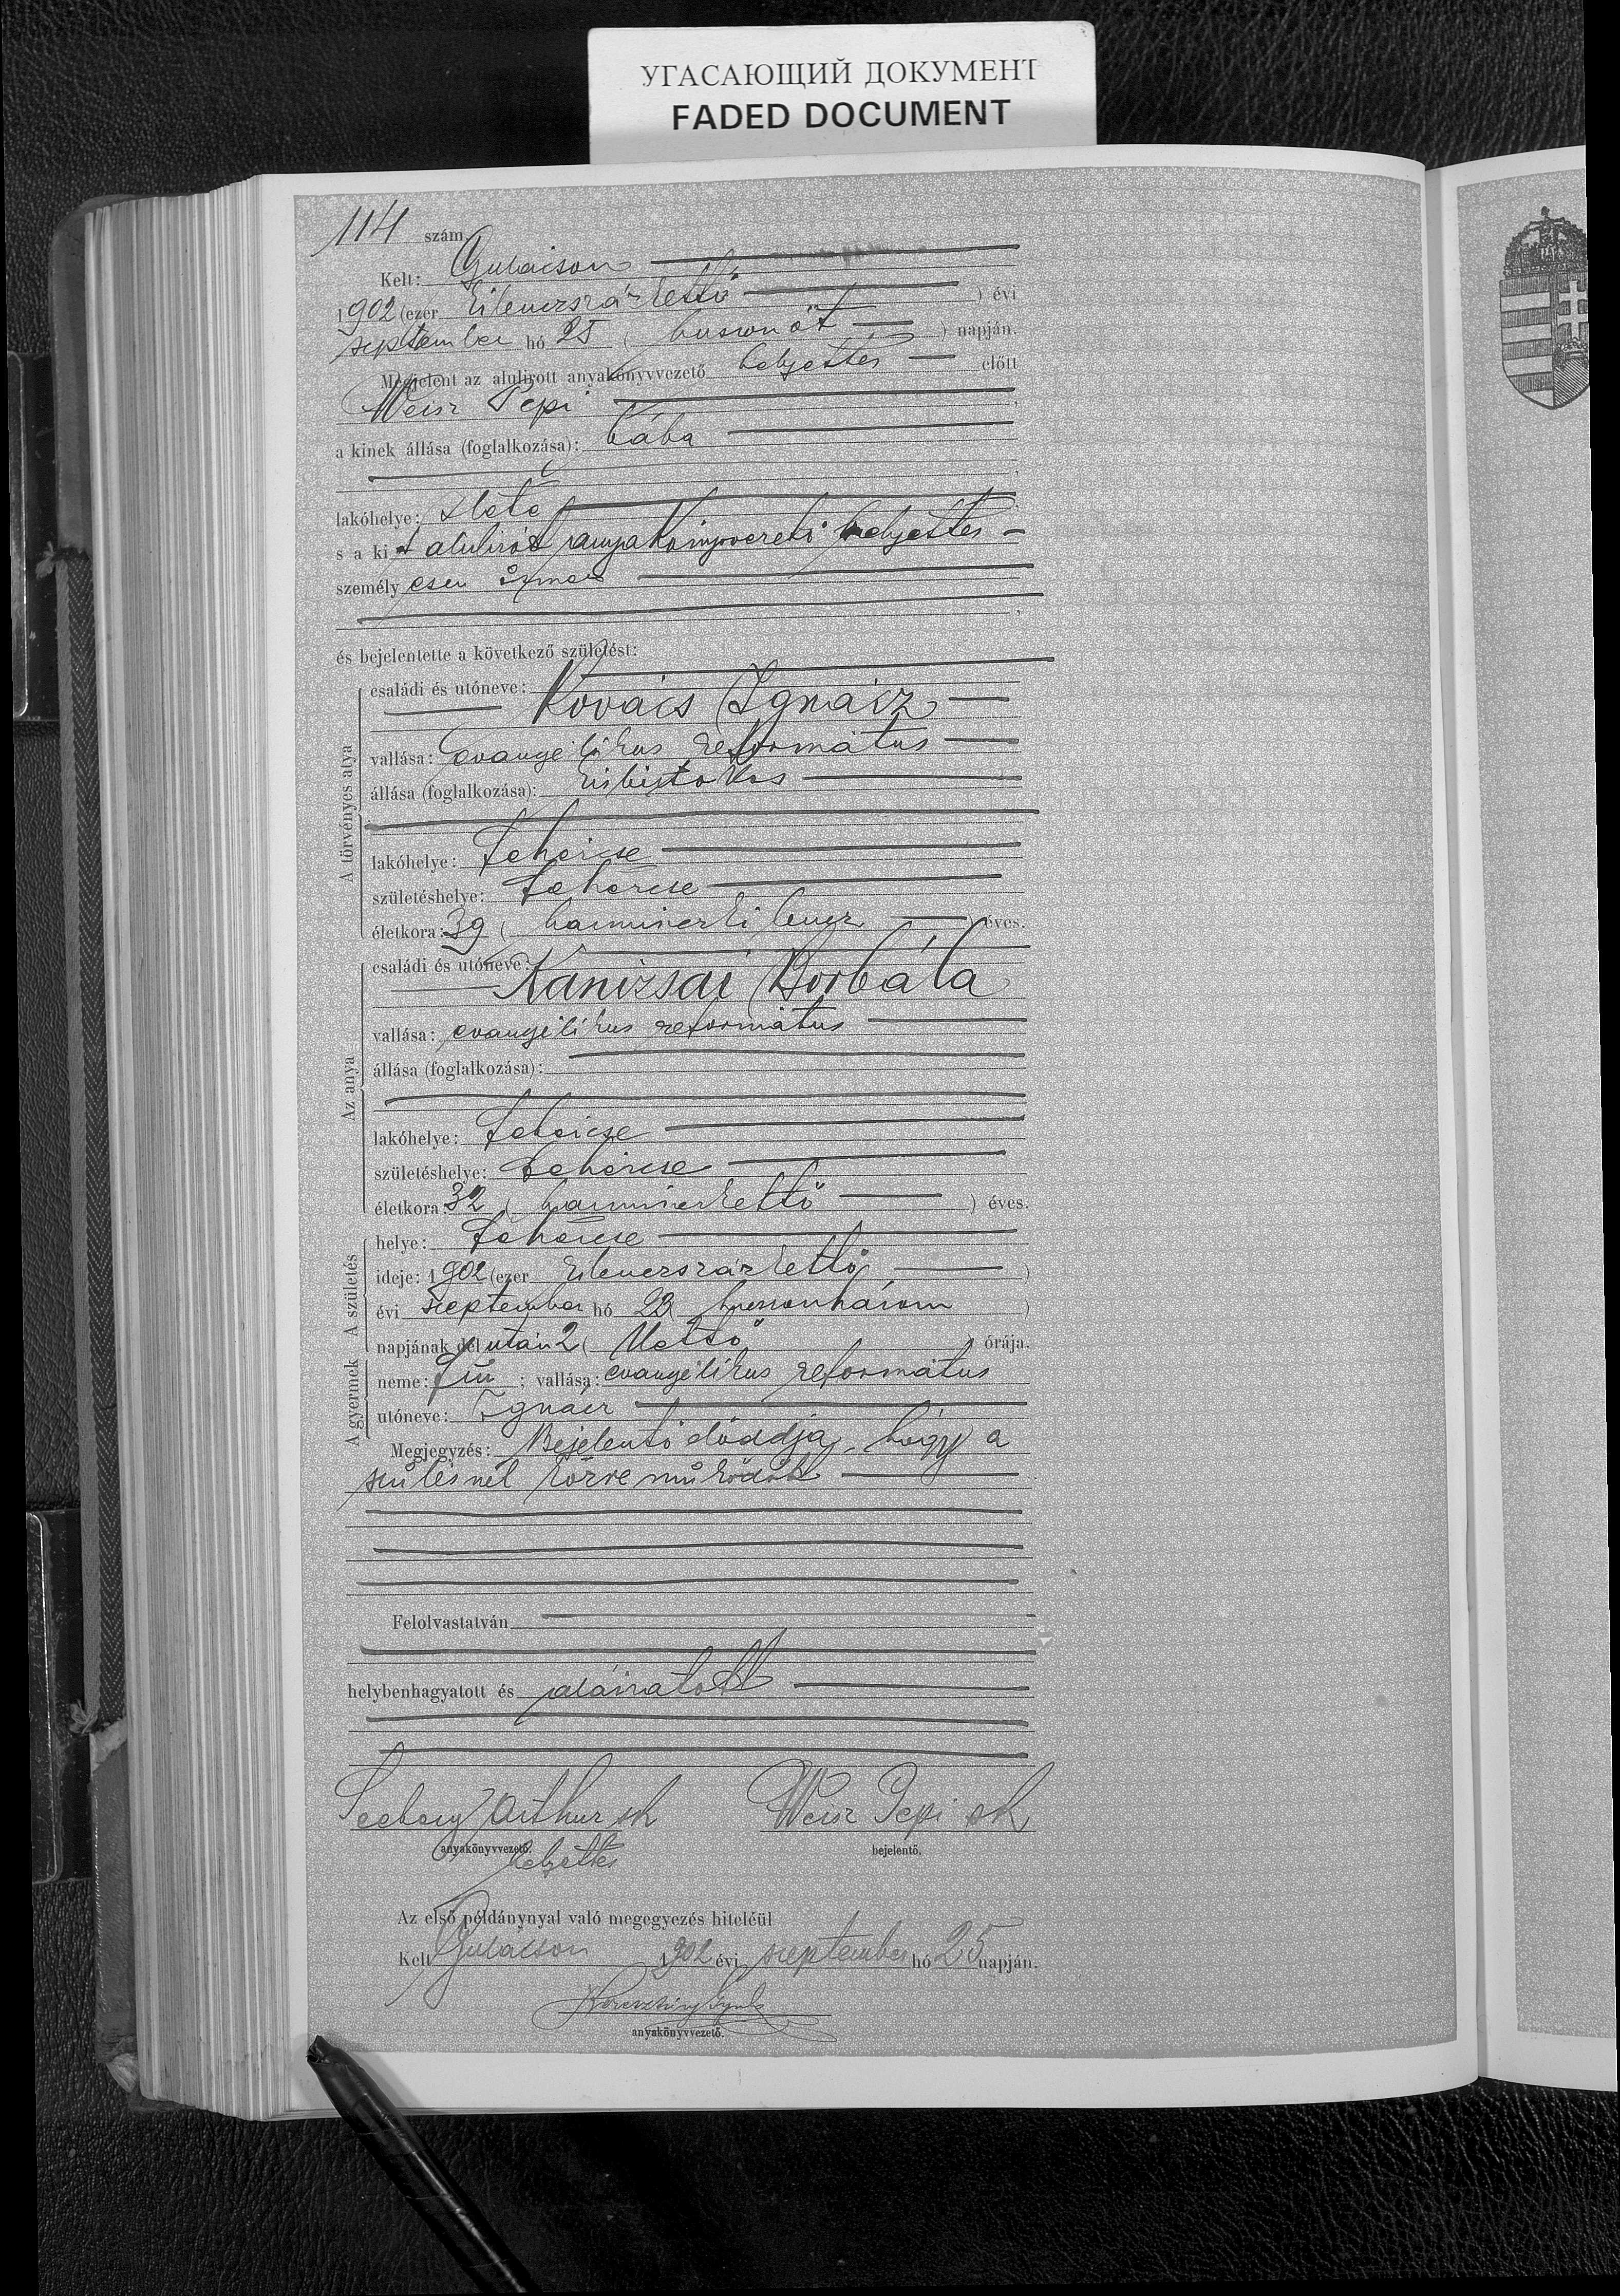 УГАСАЮЩИЙ ДОКУМЕНТ
FADED DOCUMENT
114 szám.
Kelt: Gulácson
1902 (ezer kilenczszázkettő) évi
september hó 25 (huszonöt) napján.
Megjelent az alulirott anyakönyvvezető helyettes előtt
Weisz Pepi
a kinek állása (foglalkozása): bába
lakóhelye:
s a kit alulirott anyakönyvvezető helyettes
személyesen ismer
és bejelentette a következő születést:
A törvényes atya
családi és utóneve:
Kovács Ignácz
vallása: evangélikus református
állása (foglalkozása): kisbirtokos
lakóhelye: Fehércse
születéshelye: Fehércse
életkora: 39 (harminczkilencz) éves.
Az anya
családi és utóneve:
Kanizsai Borbála
vallása: evangélikus református
állása (foglalkozása):
lakóhelye: Fehércse
születéshelye: Fehércse
életkora: 32 (harminczkettő) éves.
A születés
helye: Fehércse
ideje: 1902 (ezer kilenczszázkettő)
évi szeptember hó 23 (huszonhárom)
napjának délután 2 (kettő) órája.
A gyermek
neme: fiu; vallása: evangélikus református
utóneve: Ignácz
Megjegyzés: Bejelentő előadja, hogy a
szülésnél közreműködött
Felolvastatván
helybenhagyatott és aláiratott
Arthur sk Weisz Pepi sk
anyakönyvvezető. bejelentő.
helyettes
Az első példánynyal való megegyezés hiteléül
Kelt Gulácson 1902 évi szeptember hó 25 napján.
anyakönyvvezető.